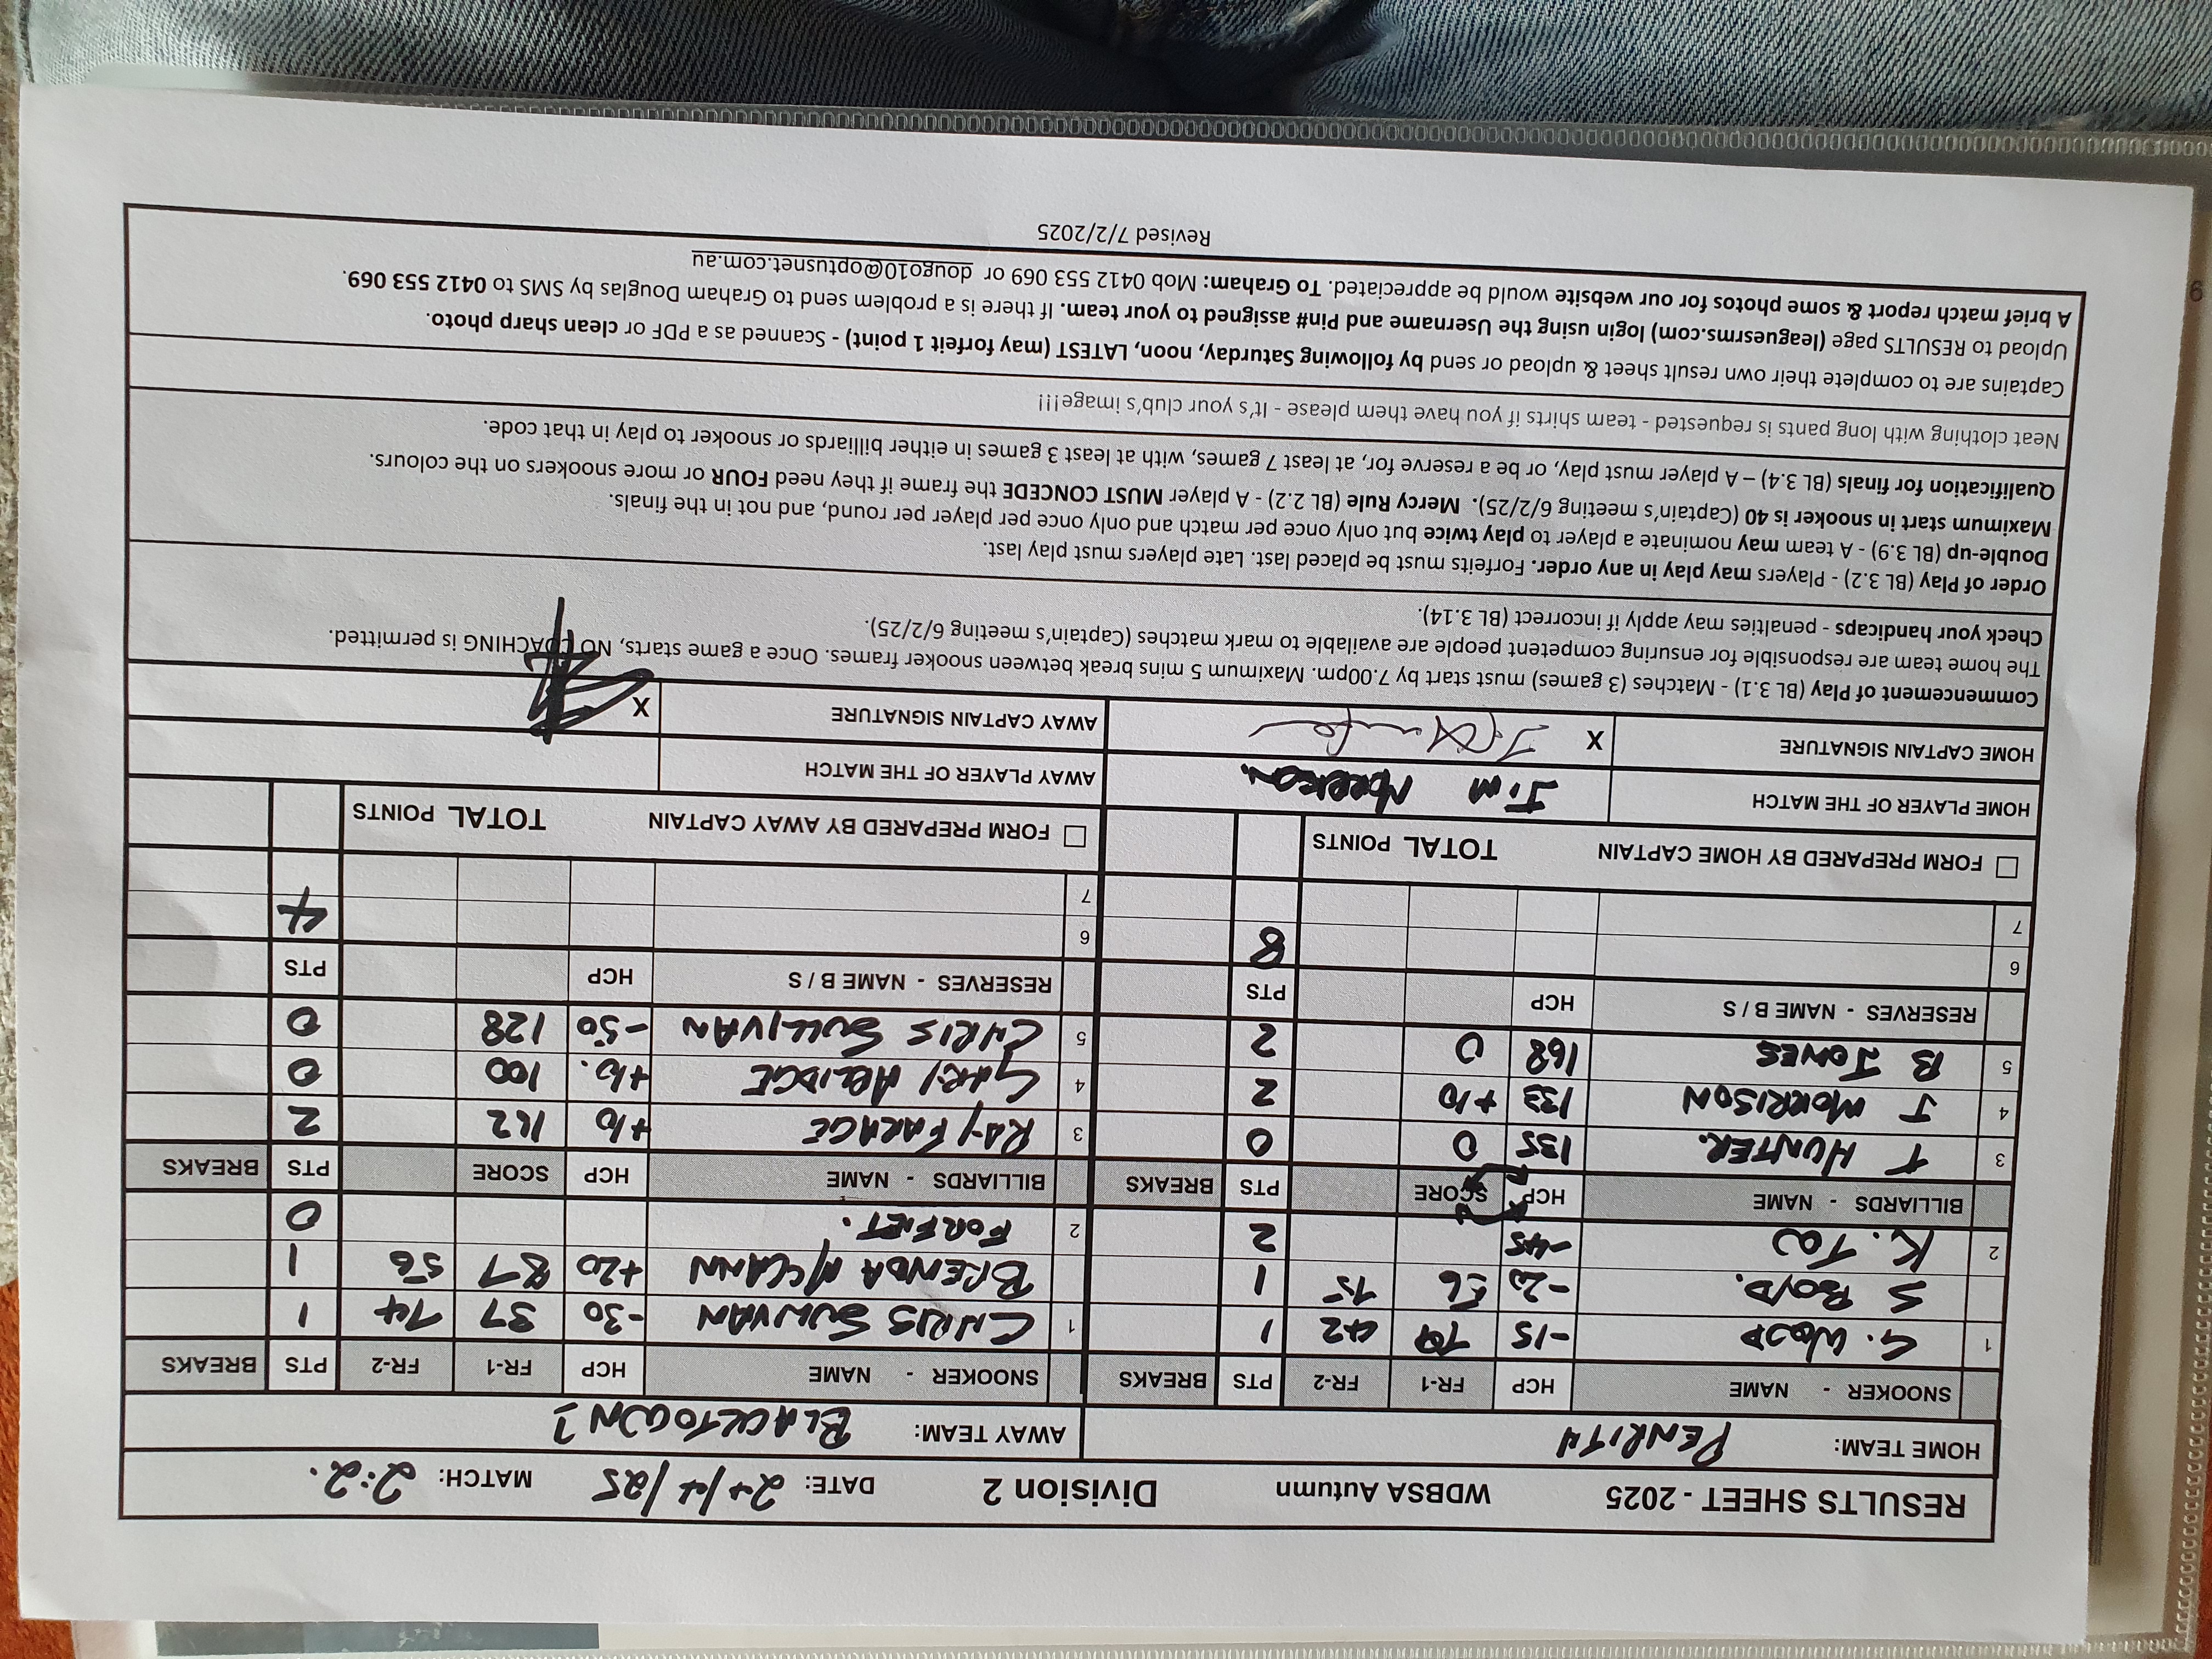 RESULTS SHEET - 2025 WDBSA Autumn Division 2 DATE: 24/4/25 MATCH: 2:2.
HOME TEAM: PENRITH AWAY TEAM: BLACKTOWN
SNOOKER - NAME HCP FR-1 FR-2 PTS BREAKS SNOOKER - NAME HCP FR-1 FR-2 PTS BREAKS
1 G. WOOD -15 42 1 1 CHRIS SULLIVAN -30 37 74 1
S BOYD. -20 56 75 1 BRENDA McCANN +20 87 56 1
2 K. TO -45 2 2 FORFIET. 0
BILLIARDS - NAME HCP SCORE PTS BREAKS BILLIARDS - NAME HCP SCORE PTS BREAKS
3 T HUNTER. 135 0 0 3 RAY FARAGE +10 162 2
4 J MORRISON 133 +10 2 4 GARY ABLIDGE +10. 100 0
5 B JONES 168 0 2 5 CHRIS SULLIVAN -50 128 0
RESERVES - NAME B / S HCP PTS RESERVES - NAME B / S HCP PTS
6 8 6 4
7 7
☐ FORM PREPARED BY HOME CAPTAIN TOTAL POINTS ☐ FORM PREPARED BY AWAY CAPTAIN TOTAL POINTS
HOME PLAYER OF THE MATCH JIM MORRISON. AWAY PLAYER OF THE MATCH
HOME CAPTAIN SIGNATURE X AWAY CAPTAIN SIGNATURE X
Commencement of Play (BL 3.1) - Matches (3 games) must start by 7.00pm. Maximum 5 mins break between snooker frames. Once a game starts, NO COACHING is permitted.
The home team are responsible for ensuring competent people are available to mark matches (Captain's meeting 6/2/25).
Check your handicaps - penalties may apply if incorrect (BL 3.14).
Order of Play (BL 3.2) - Players may play in any order. Forfeits must be placed last. Late players must play last.
Double-up (BL 3.9) - A team may nominate a player to play twice but only once per match and only once per player per round, and not in the finals.
Maximum start in snooker is 40 (Captain's meeting 6/2/25). Mercy Rule (BL 2.2) - A player MUST CONCEDE the frame if they need FOUR or more snookers on the colours.
Qualification for finals (BL 3.4) – A player must play, or be a reserve for, at least 7 games, with at least 3 games in either billiards or snooker to play in that code.
Neat clothing with long pants is requested - team shirts if you have them please - It's your club's image!!!
Captains are to complete their own result sheet & upload or send by following Saturday, noon, LATEST (may forfeit 1 point) - Scanned as a PDF or clean sharp photo.
Upload to RESULTS page (leaguesrms.com) login using the Username and Pin# assigned to your team. If there is a problem send to Graham Douglas by SMS to 0412 553 069.
A brief match report & some photos for our website would be appreciated. To Graham: Mob 0412 553 069 or dougo10@optusnet.com.au
Revised 7/2/2025